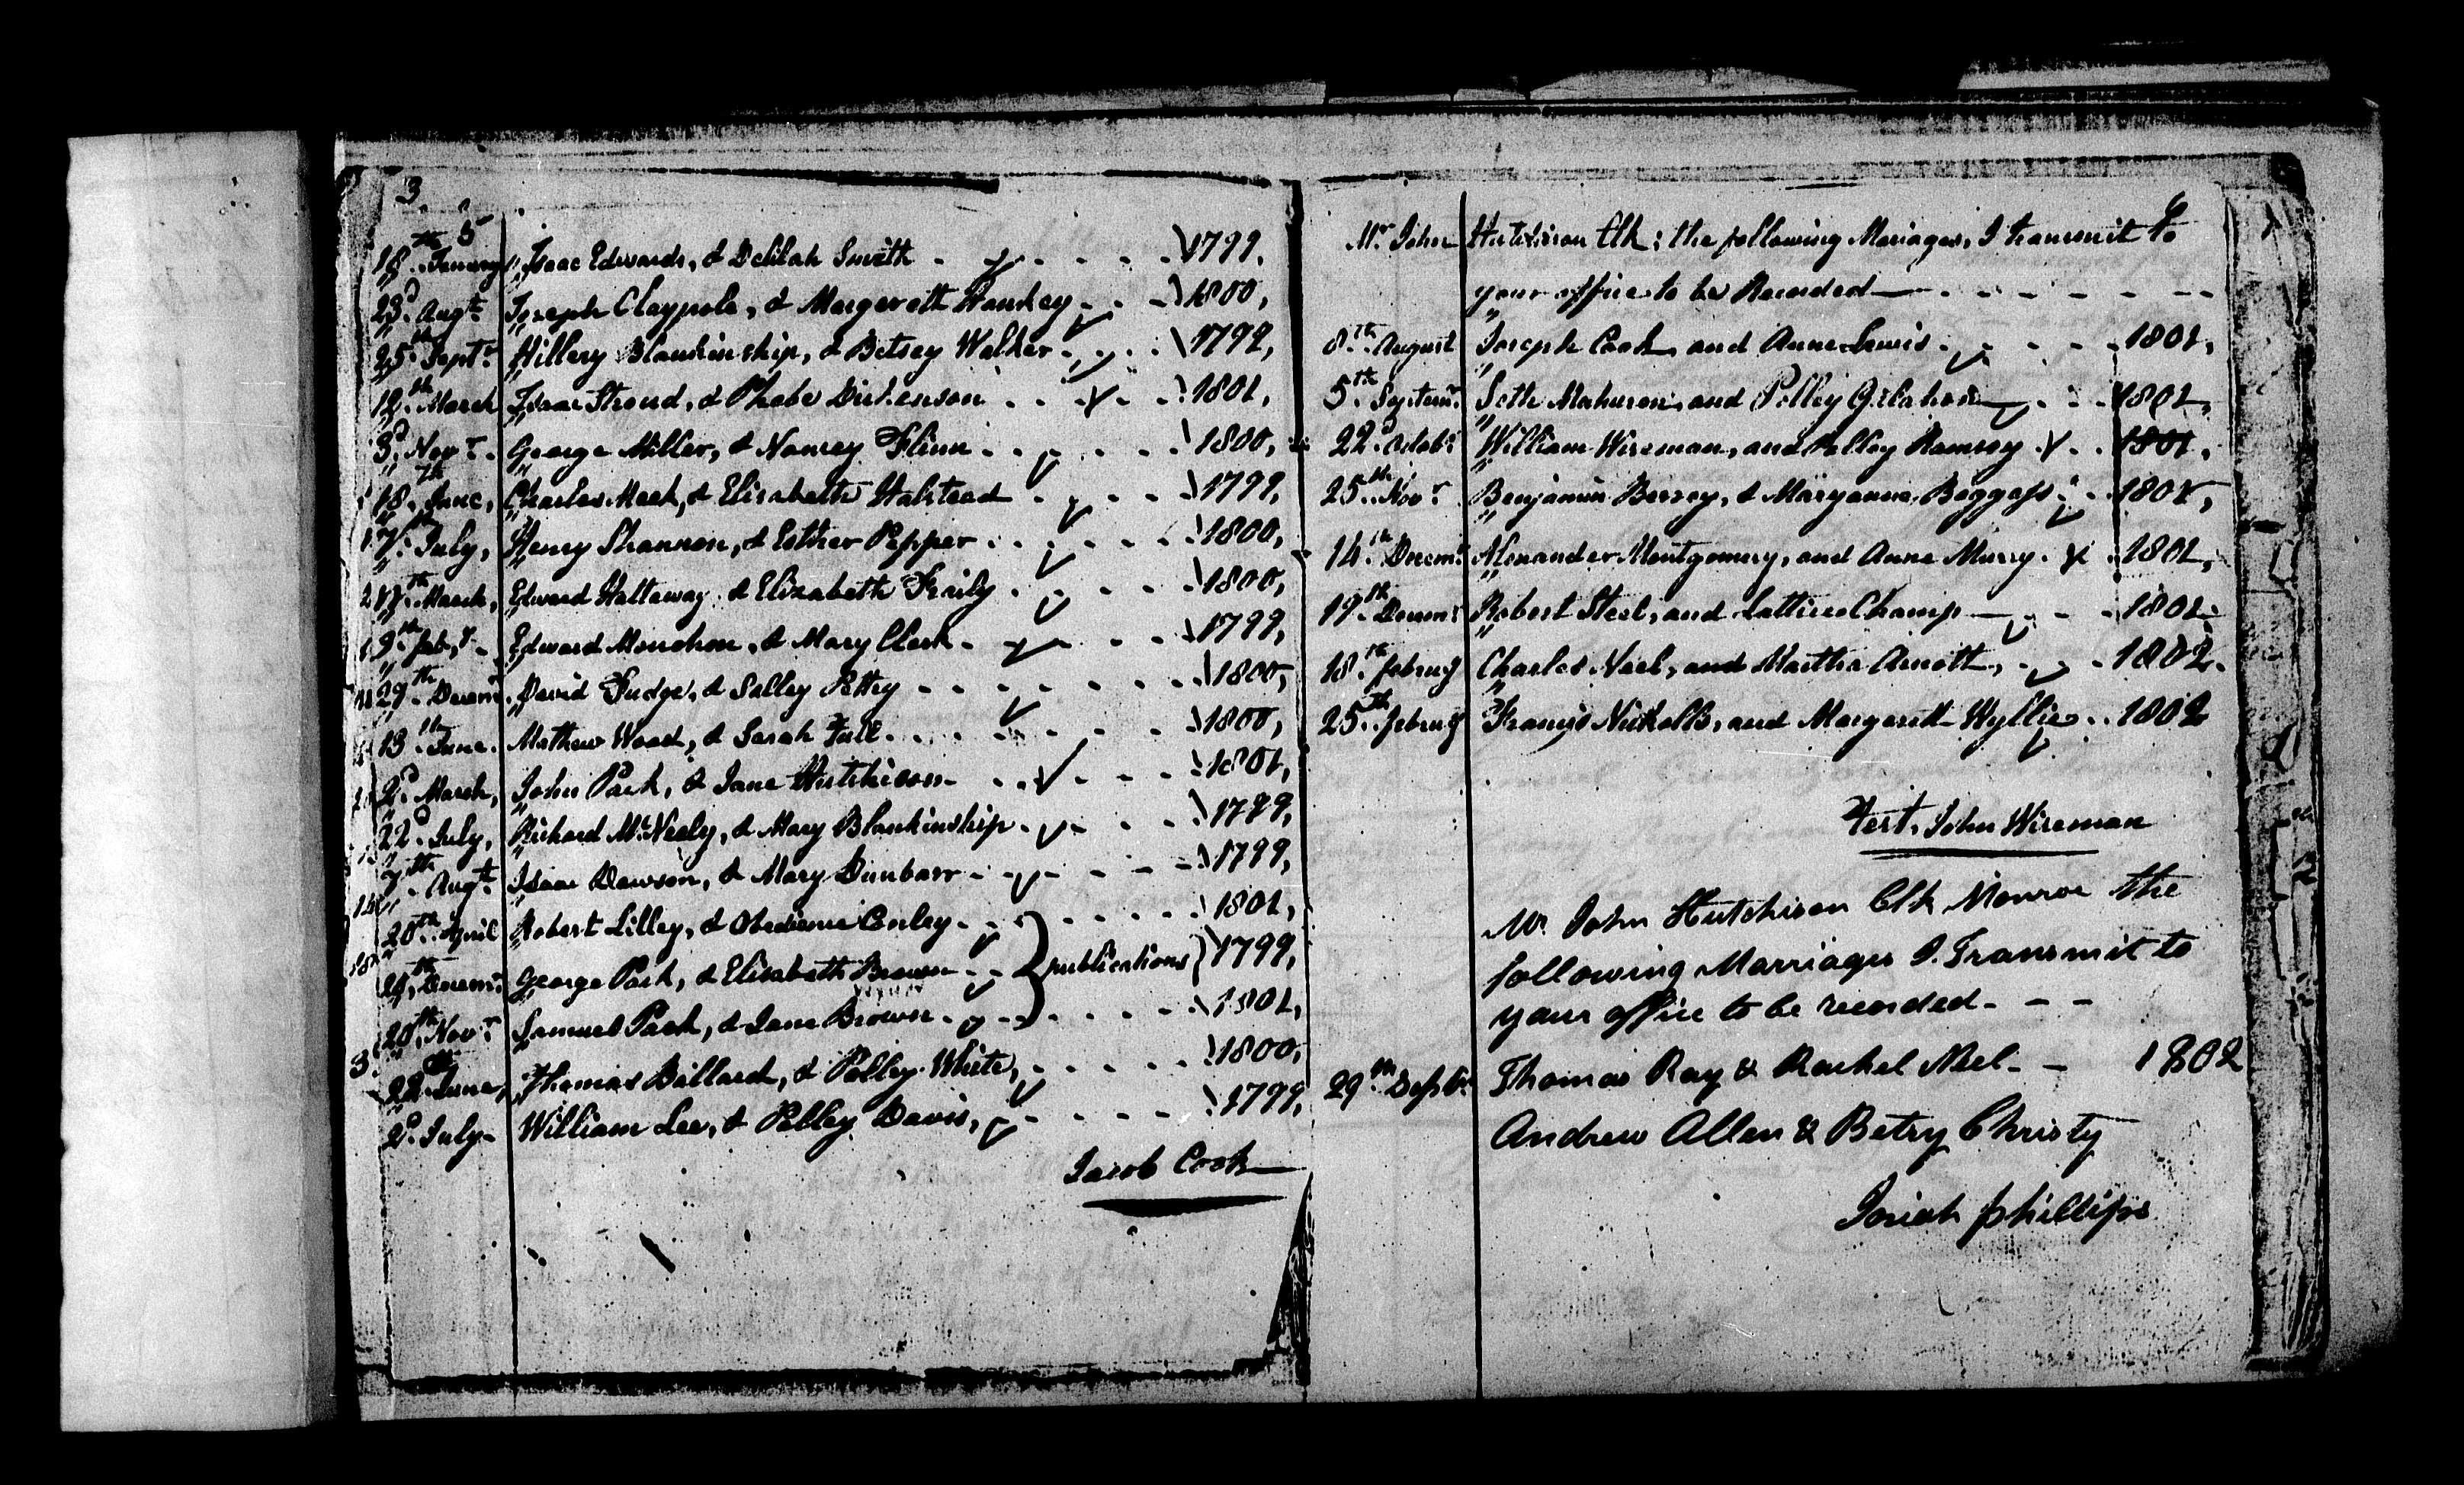 3
5
18th January Isaac Edwards, & Delilah Smith 1799,
23d Augt Joseph Claypole, & Margerett Hankey 1800,
25th Septr Hillery Blankinship, & Betsey Walker 1799,
12th March Isaac Stroud, & Phebe Dickenson 1801,
3d Novr George Miller, & Nancy Flinn 1800,
18th June, Charles Meek, & Elizabeth Halstead 1799,
17th July, Henry Shannon, & Esther Pepper 1800,
March, Edward Hattaway & Elizabeth Fraily 1800,
9th Feby Edward Monohon, & Mary Clark 1799,
29th Decemr David Fudge, & Salley Pettey 1800,
13th June Mathew Wood, & Sarah 1800,
2d March, John Pack, & Jane Hutchison 1801,
22d July, Richard McNeely, & Mary Blankinship 1799,
7th Augt Isaac Dawson, & Mary Dunbarr 1799,
20th April Robert Lilley, & Obedience Conley 1801,
Decemr George Pack, & Elizabeth Brown publications 1799,
20th Novr Samuel Pack, & Jane Brown 1801,
22d June, Thomas Ballard, & Polley White, 1800,
2d July William Lee, & Polley Davis, 1799,
Jacob Cook
6
Mr John Hutchison Clk; the following Mariages, I transmit to
your office to be Recorded
8th August Joseph Cook and Anne Lewis 1801,
5th Septemr Seth Mahuron and Polley Gilahon 1801,
22d Octobr William Wiseman, and Polley Ramsey 1801,
25th Novr Benjamin Berrey, & Maryanne Beggess 1801,
14th Decemr Alexander Montgomery, and Anne Murry 1801,
19th Decemr Robert Steel, and Lattice Champ 1801
18th februy Charles Neel, and Martha Arnott, 1802
25th februy Francis Nickolls, and Margerett Wyllie 1802
Test, John Wiseman
Mr. John Hutchison Clk Monroe the
following Marriages I Transmit to
your office to be recorded
29th Septbr Thomas Ray & Rachel Neel 1802
Andrew Allen & Betsy Christy
Josiah phillips